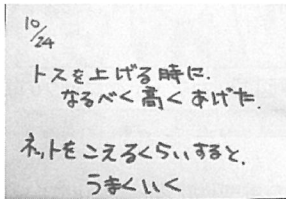 10/24
トスを上げる時に.
なるべく高くあげた.
ネットをこえるくらいすると.
うまくいく